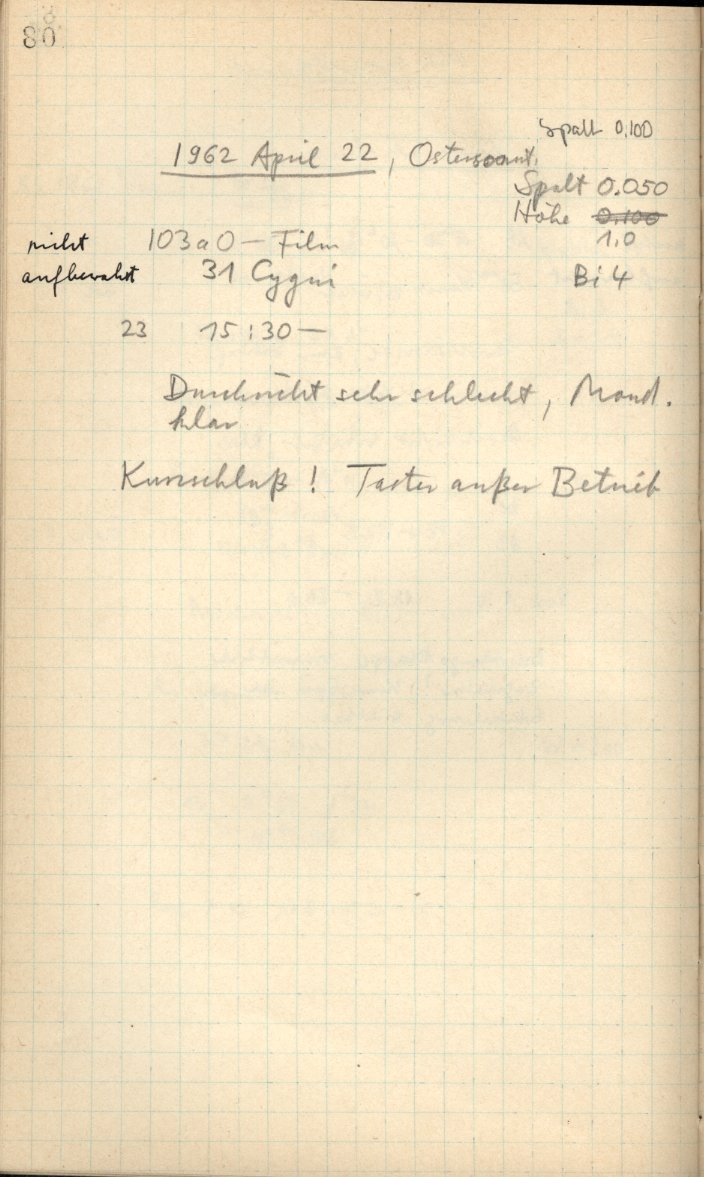 80
Spalt 0.100
1962 April 22, Ostersonnt.
Spalt 0.050
Höhe 0.100
1,0
nicht 103aO – Film
aufbewahrt 31 Cygni Bi 4
23 15:30 –
Durchsicht sehr schlecht, Mond.
klar
Kurzschluß! Taster außer Betrieb